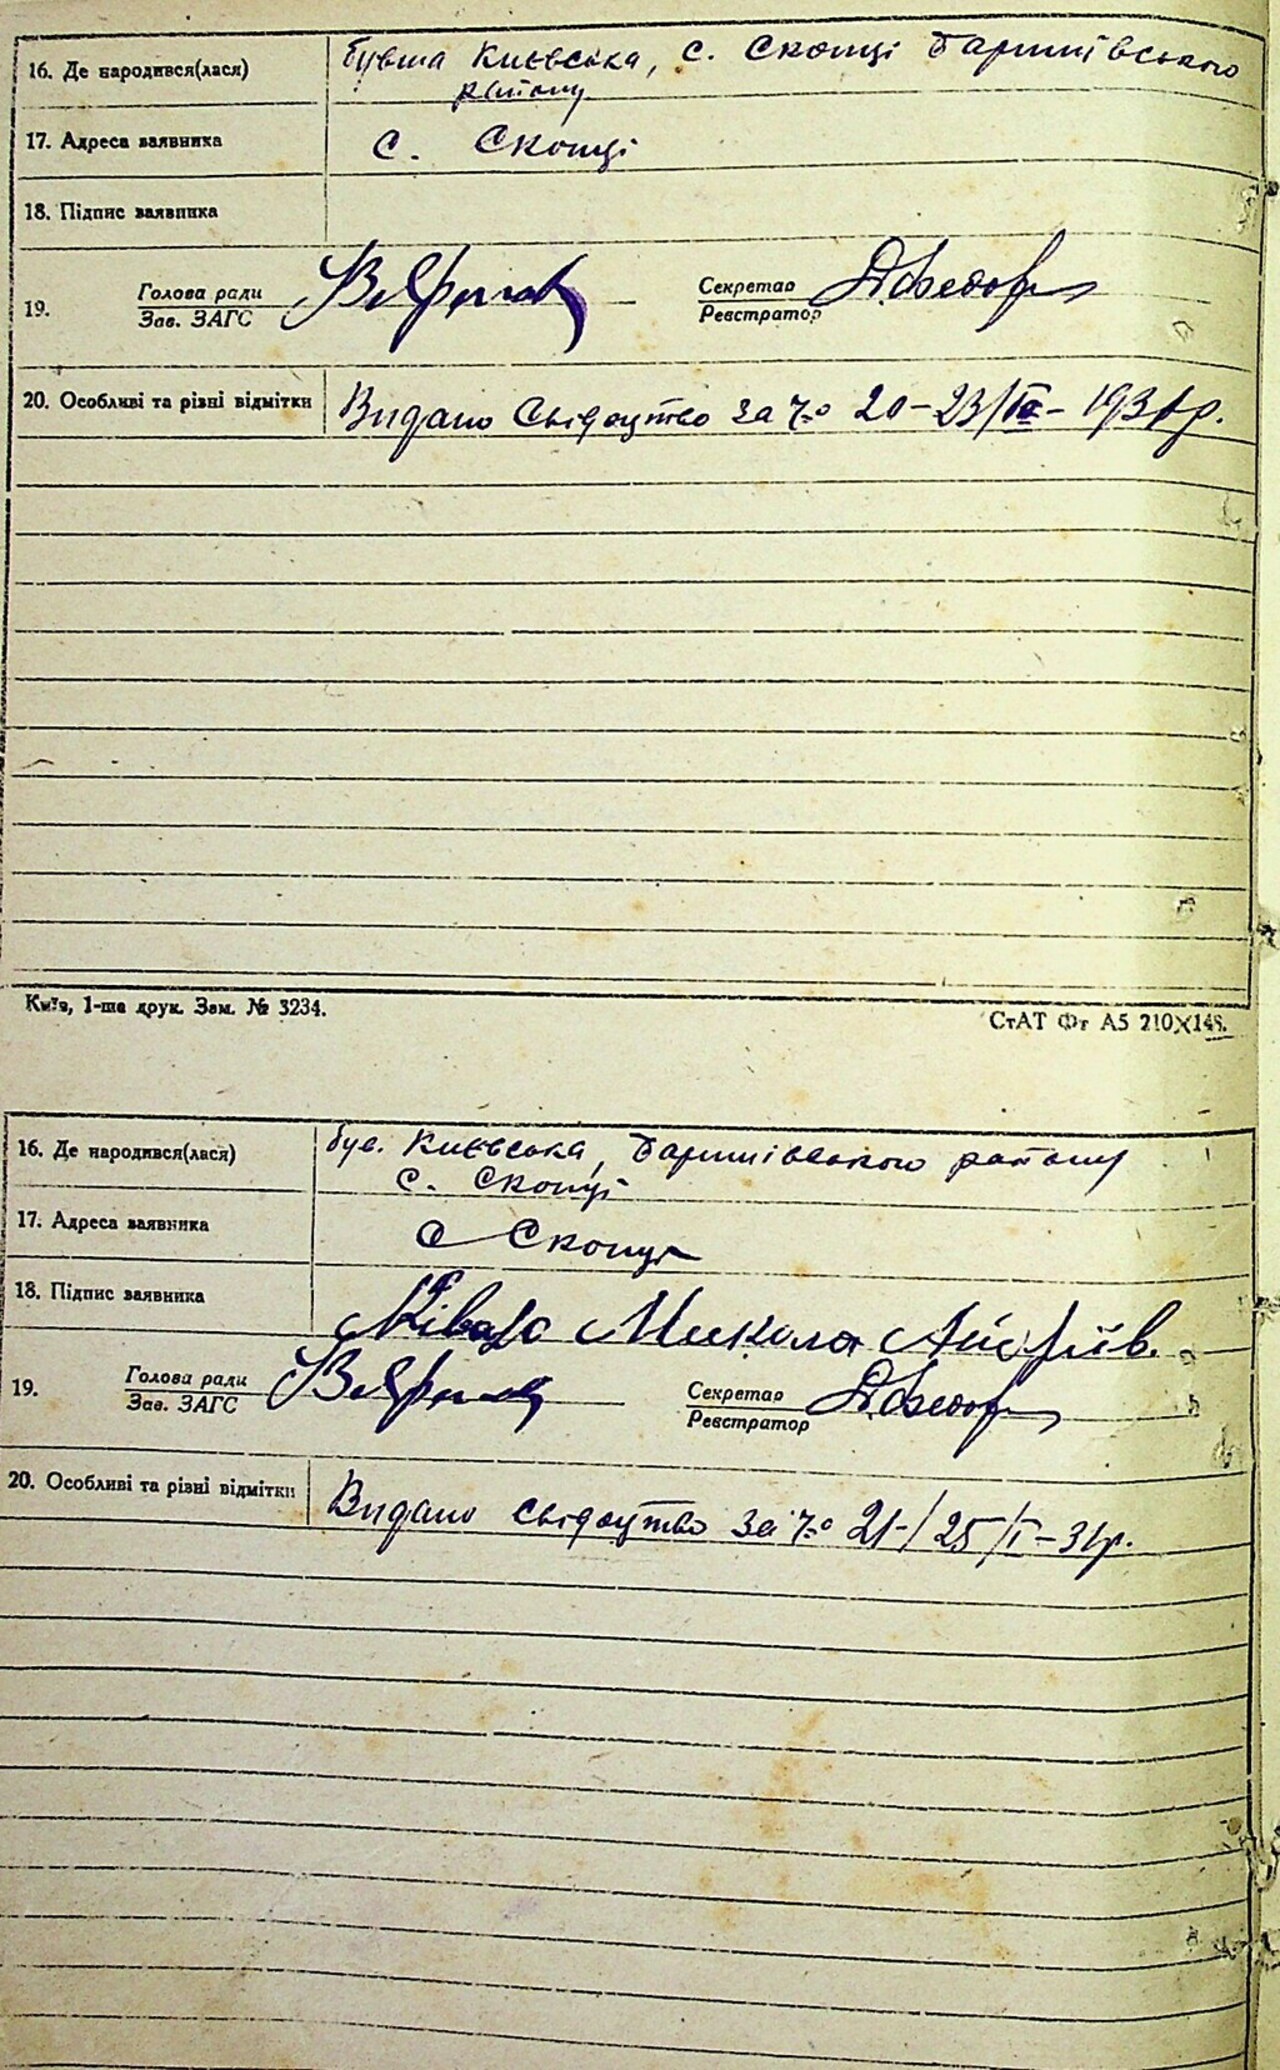 16. Де народився(лася) бувша Києвська, с. Скопці Баришівського
району
17. Адреса заявника с. Скопці
18. Підпис заявника
19. Голова ради
Зав. ЗАГС
Секретар
Реєстратор
20. Особливі та різні відмітки Видано Свідоцтво за ч. 20 - 23/ - 1931р.
Київ, 1-ша друк. Зам. № 3234.
СтАТ Фт А5 210×148.
16. Де народився(лася) був. Києвська, Баришівського району
с. Скопці
17. Адреса заявника с Скопці
18. Підпис заявника Микола Андріїв.
19. Голова ради
Зав. ЗАГС
Секретар
Реєстратор
20. Особливі та різні відмітки Видано свідоцтво за ч. 21-/25/I-31р.